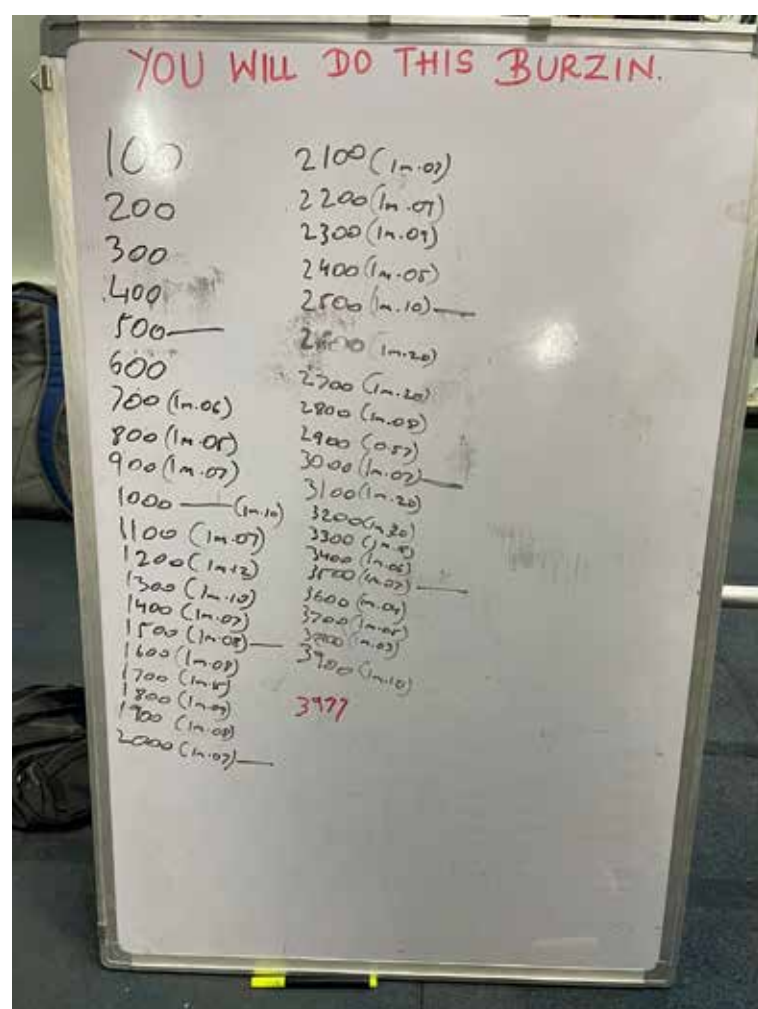 YOU WILL DO THIS BURZIN.
100
200
300
400
500
600
700 (1m.06)
800 (1m.05)
900 (1m.07)
1000 (1m.10)
1100 (1m.07)
1200 (1m12)
1300 (1m.10)
1400 (1m.07)
1500 (1m.08)
1600 (1m.08)
1700
1800
1900 (1m.08)
2000 (1m.07)
2100 (1m.07)
2200 (1m.07)
2300 (1m.09)
2400 (1m.05)
2500 (1m.10)
2600 (1m.20)
2700 (1m.20)
2800 (1m.08)
2900 (0.57)
3000 (1m.07)
3100 (1m.20)
3200
3300
3400 (1m.06)
3500 (1m.07)
3600 (1m.04)
3700
3800
3900 (1m.10)
3977